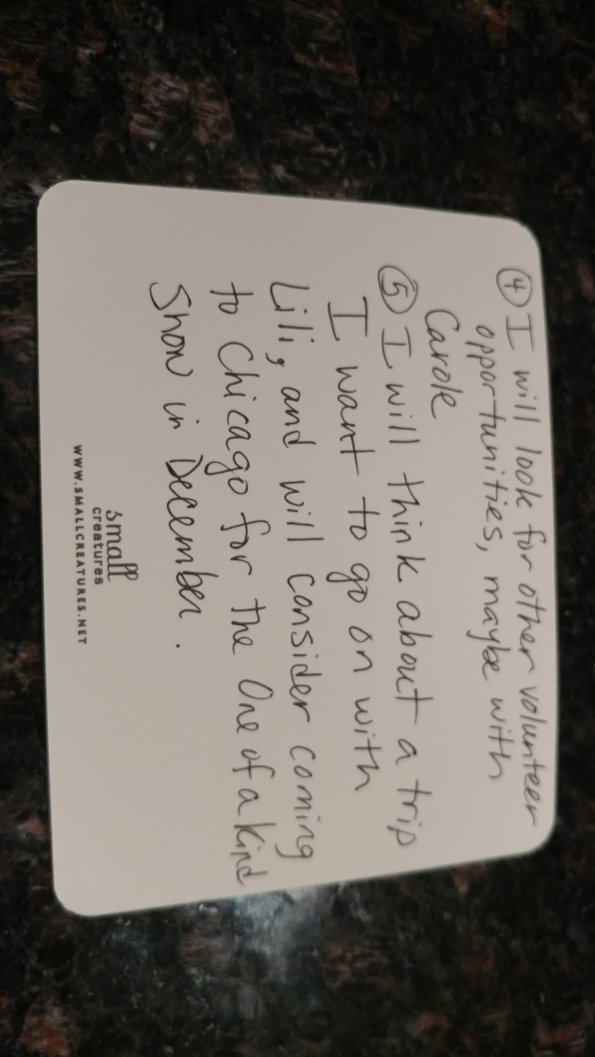 ④ I will look for other volunteer
opportunities, maybe with
Carole
⑤ I will think about a trip
I want to go on with
Lili, and will consider coming
to Chicago for the One of a kind
Show in December.
small
creatures
WWW.SMALLCREATURES.NET